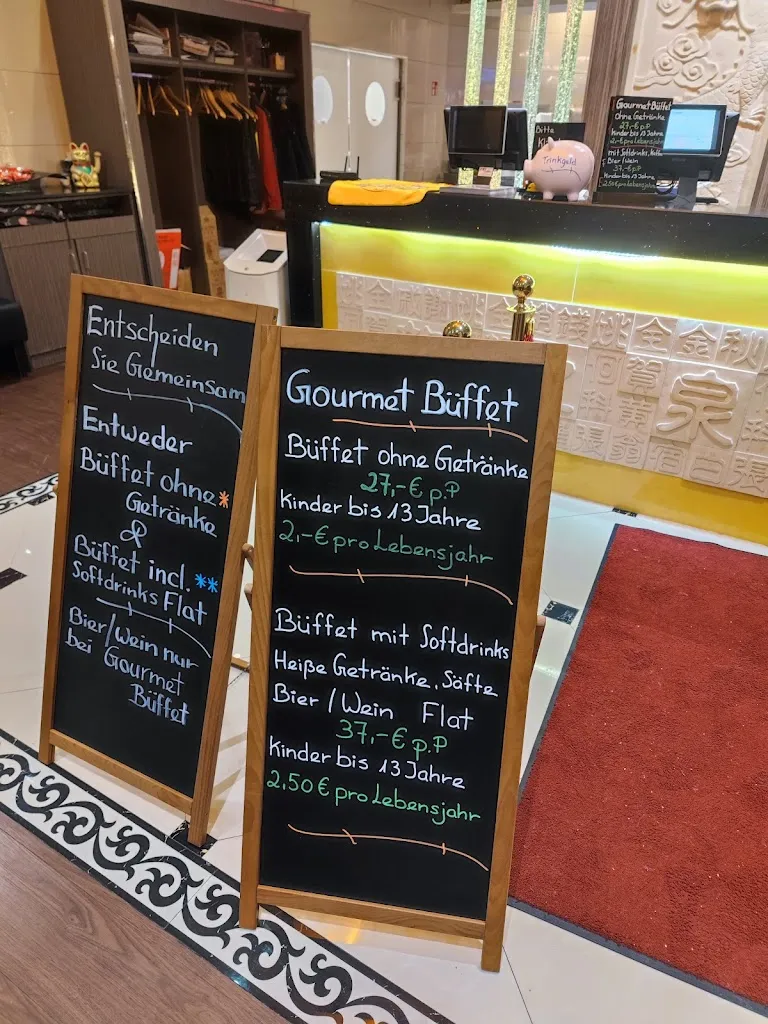 Entscheiden
Sie Gemeinsam
Entweder
Büffet ohne*
Getränke
Büffet incl.**
Softdrinks Flat
Bier/Wein nur
bei Gourmet
Büffet
Gourmet Büffet
Büffet ohne Getränke
27,-€ p.P
Kinder bis 13 Jahre
2,-€ pro Lebensjahr
Büffet mit Softdrinks
Heiße Getränke, Säfte
Bier / Wein Flat
37,-€ p.P
Kinder bis 13 Jahre
2,50€ pro Lebensjahr
Bitte
Trinkgeld
Gourmet Büffet
ohne Getränke
27,-€ p.P
Kinder bis 13 Jahre
2,-€ pro Lebensjahr
mit Softdrinks,
Bier/Wein
37,-€ p.P
Kinder bis 13 Jahre
2,50€ pro Lebensjahr
泉